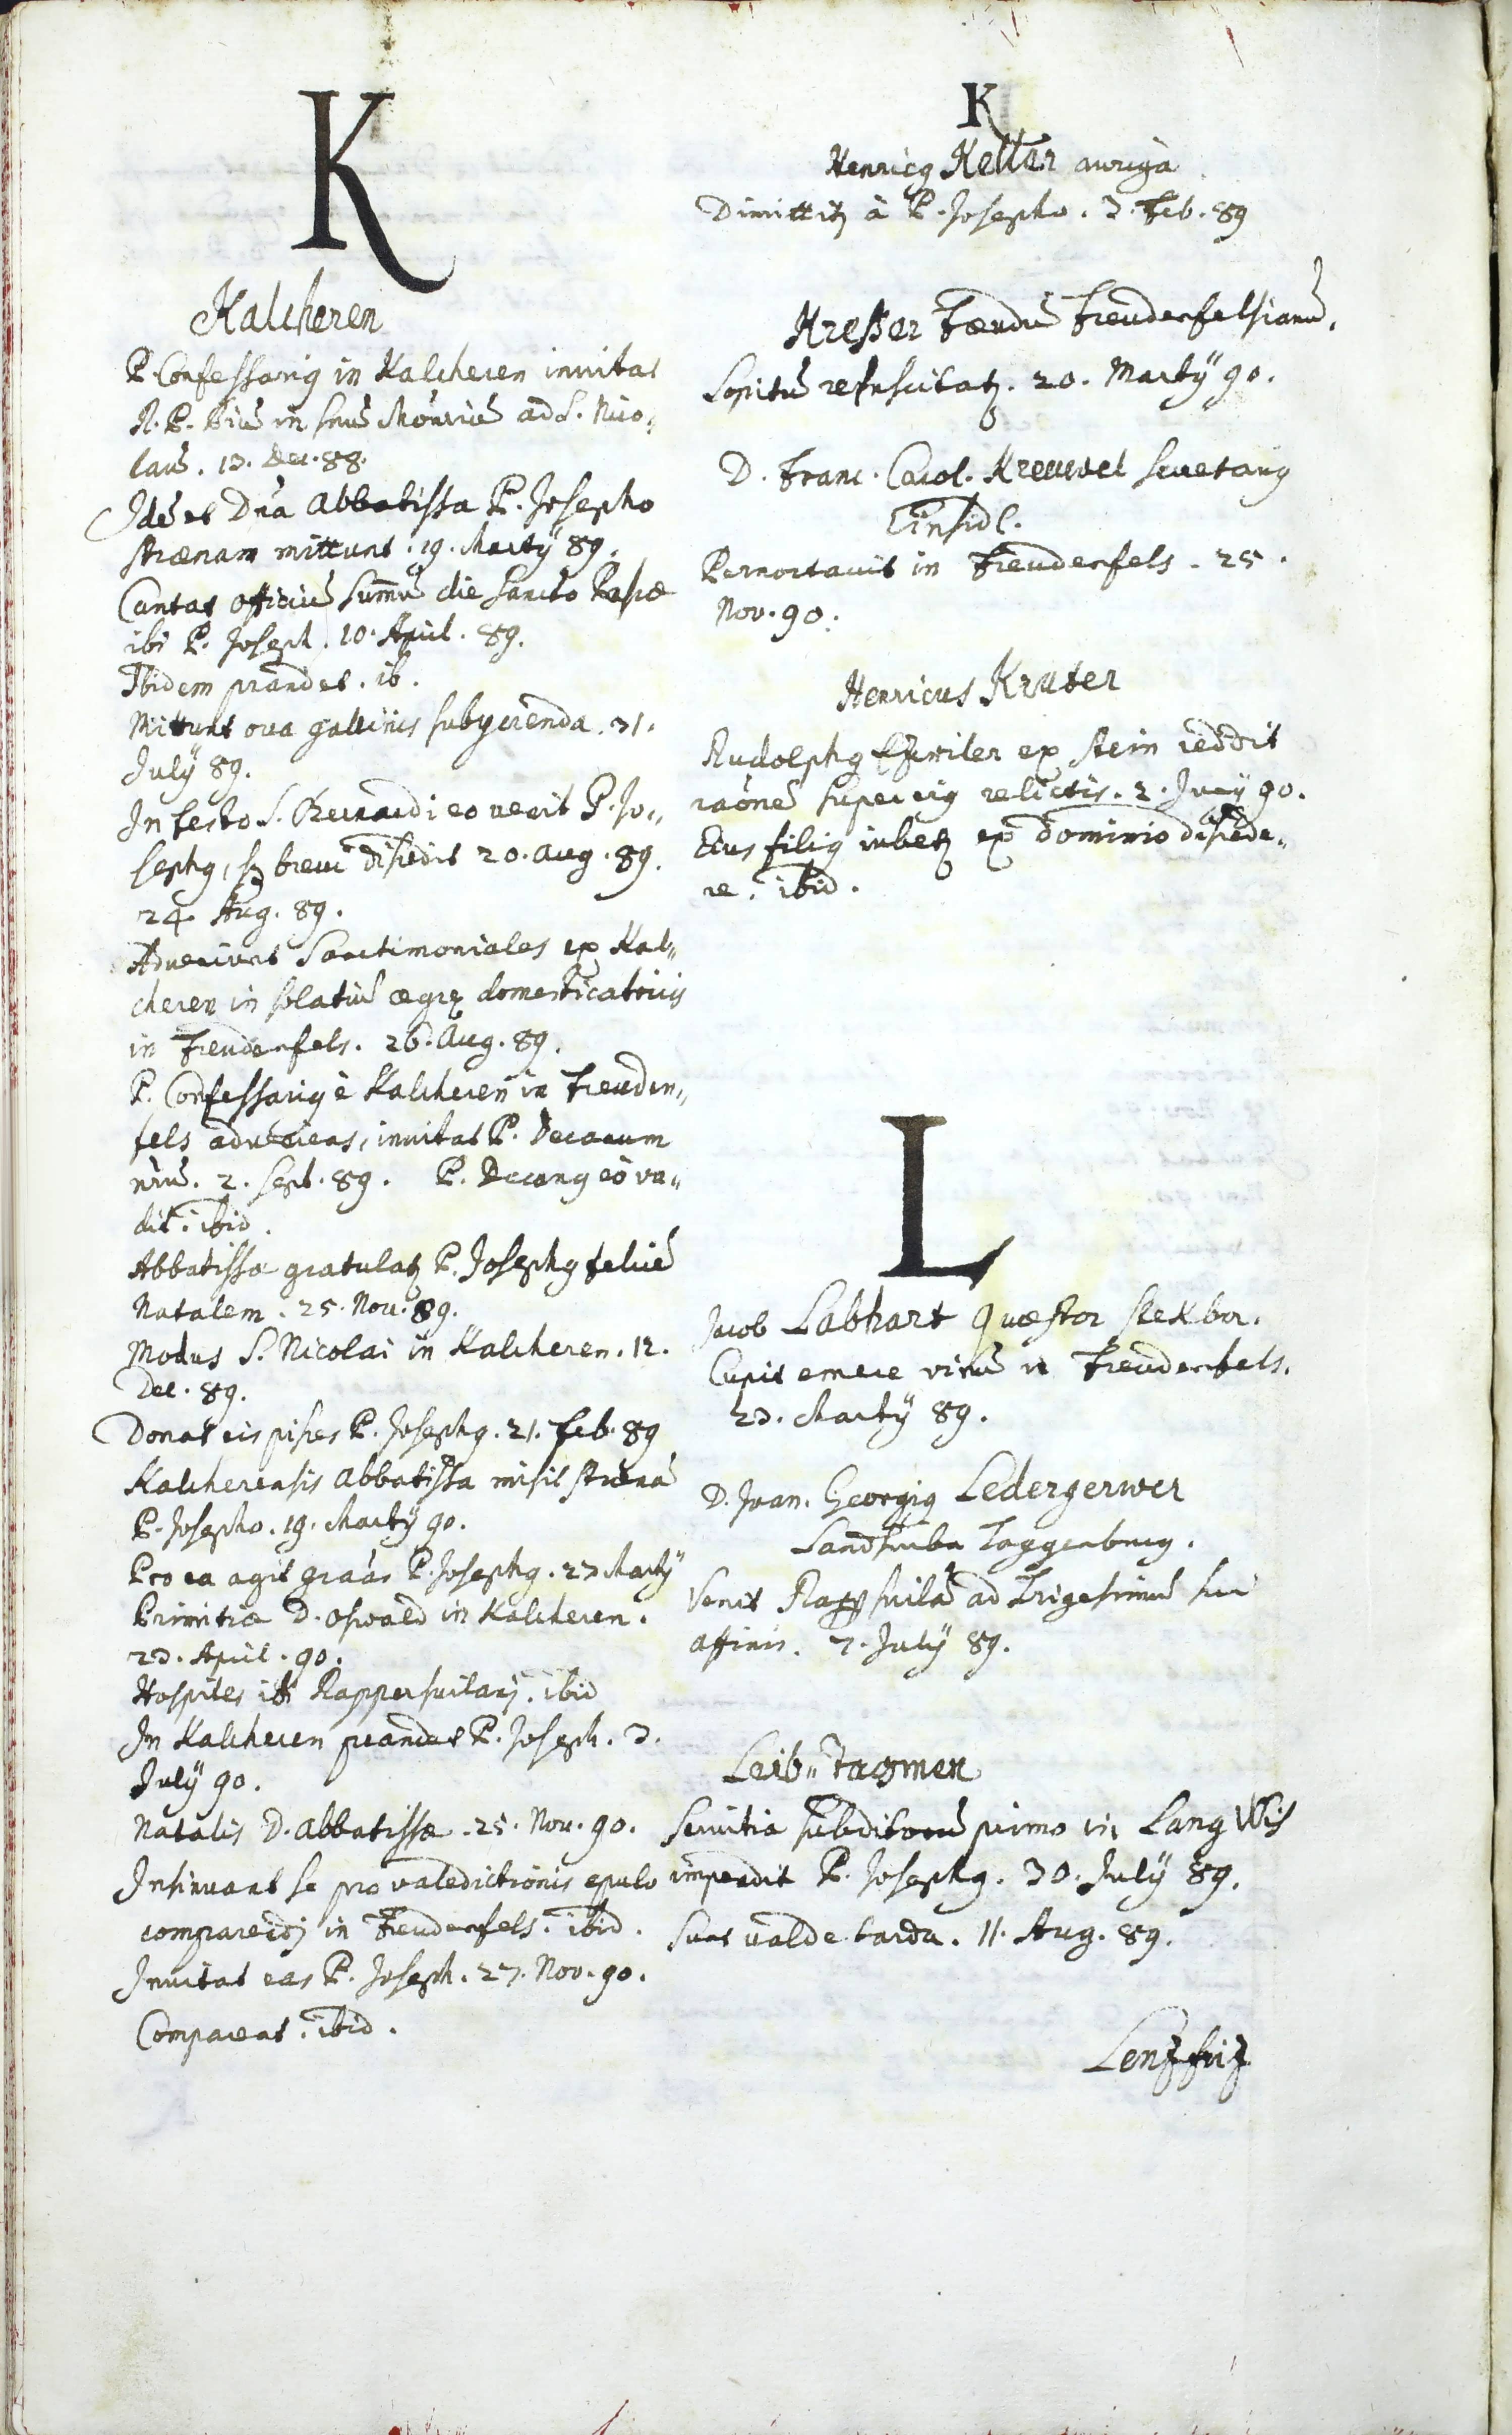 K
Kalcheren
P. Confessariꝰ in Kalcheren inuitat
R. P. Piū in suū Mönriū ad S. Nico„
laū. 13. Dec. 88.
Idē et Dn̄a Abbatissa P. Josepho
strænam mittunt. 19. Martÿ 89.
Cantat officiū sum̄ū die sancto Pasc͞hæ
ibi P. Joseph. 10. April. 89.
Ibidem prandet. ib.
Mittunt oua gallinis subijcienda. 31.
Julÿ 89.
In festo S. Bernardi eo venit P. Jo„
sephꝰ, sꝫ breui discedit 20. Aug. 89.
24. Aug. 89.
Adueniunt Sanctimoniales ex Kal„
cheren in solatiū ægræ domesticatricis
in Freudenfels. 26. Aug. 89.
P. Confessariꝰ è Kalcheren in Freuden„
fels adueniens, inuitat P. Decanum
nr̄ū. 2. Sept. 89. P. Decanꝰ eò va„
dit. ibid.
Abbatissæ gratulatꝫ P. Josephꝰ felicē
Natalem. 25. Nou. 89.
Modus S. Nicolai in Kalcheren. 12.
Dec. 89.
Donat eis pisces P. Josephꝰ. 21. Feb. 89
Kalcherensis Abbatissa misit strænā
P. Josepho. 19. Martÿ 90.
Pro ea agit gr̄aas P. Josephꝰ. 23 Martÿ
Primitiæ D. Oswald in Kalcheren.
23. April. 90.
Hospites ibi Rapperswilani. ibid
In Kalcheren prandet P. Joseph. 3.
Julÿ 90.
Natalis D. Abbatissæ. 25. Nou. 90.
Insinuant se pro valedictionis epulo
comparendj in Freudenfels. ibid.
Inuitat eas P. Joseph. 27. Nov. 90.
Comparent. ibid.
K
Henricꝰ Keller auriga
Dimittitꝫ à P. Josepho. 3. Feb. 89
Kresser Fæudū Freudenfelsianū.
Sopitū resuscitatꝫ. 20. Martÿ 90.
D. Franc. Carol. Kreuwel secretariꝰ
Einsidl.
Pernoctauit in Freudenfels. 25.
Nov. 90.
Henricus Kruter
Rudolphꝰ Etzwiler ex Stein reddit
raōnē super eiꝰ relictis. 2. Junÿ 90.
Eius filiꝰ iubetꝫ ex dominio discede„
re. ibid.
L
Jacob Labhart Quæstor Stekbor.
Cupit emere vinū in Freudenfels.
23. Martÿ 89.
D. Joan. Georgiꝰ Ledergerwer
Landtscriba Toggenburg.
Venit Rappswilā ad Trigesimū sui
affinis. 7. Julÿ 89.
Leib„ Tagmen
Seruitia subditorū primo in Lang Wis
impendit P. Josephꝰ. 30. Julÿ 89.
Sunt valde tarda. 11. Aug. 89.
Lenzfriz